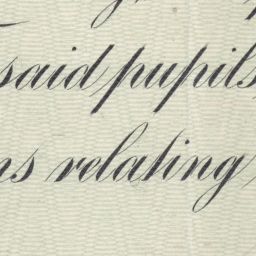 said pupils
ns relating